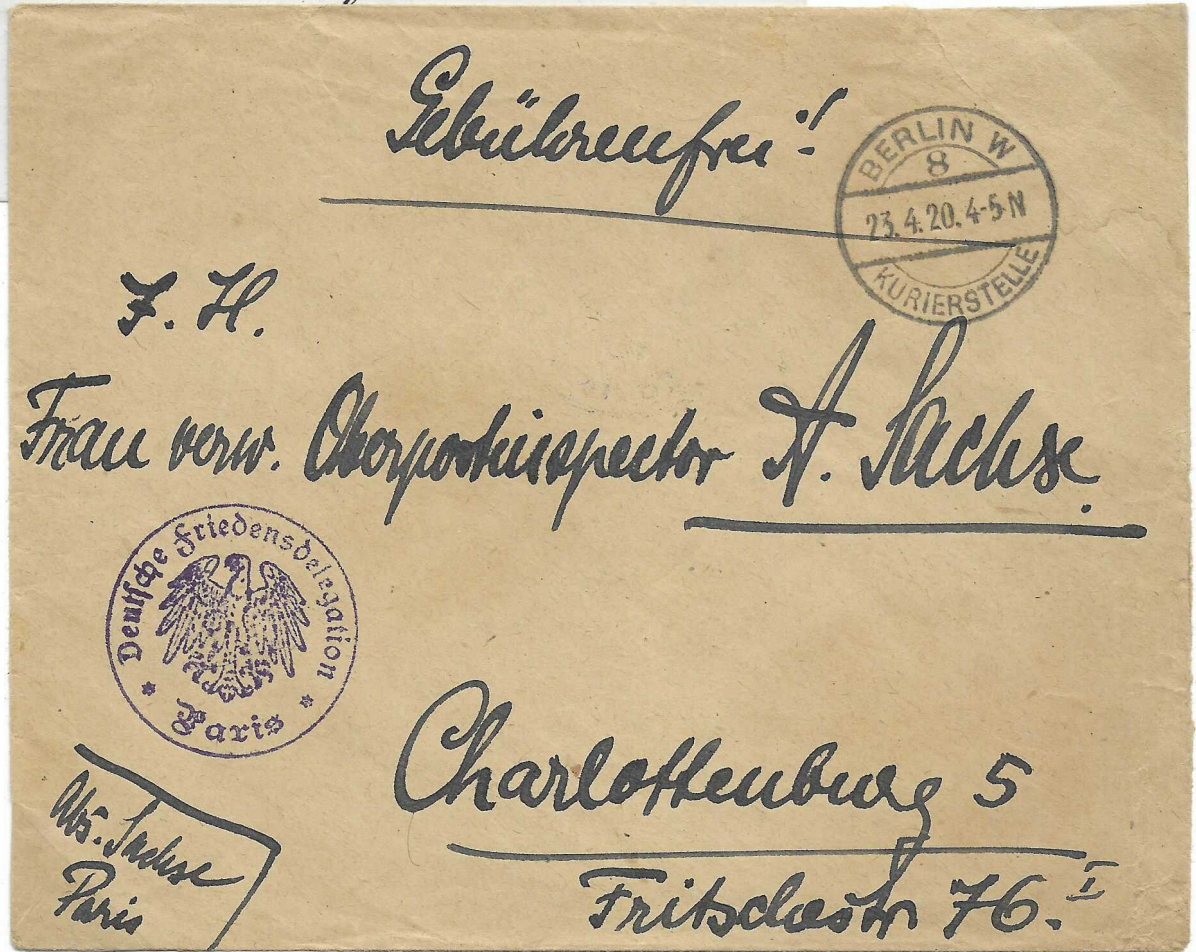 Gebührenfrei!
BERLIN W
8
23.4.20. 4-5 N
KURIERSTELLE
F. H.
Frau verw. Oberpostinspector A. Sachse.
Deutsche Friedensdelegation
* Paris *
Charlottenburg 5
Fritschestr 76. I
Abs. Sachse
Paris